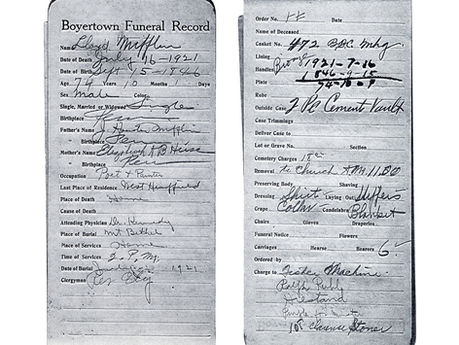 Boyertown Funeral Record
Name Lloyd Mifflin
Date of Death July 16-1921
Date of Birth Sept 15-1846
Age 74 Years 10 Months 1 Days
Sex Male Color
Single, Married or Widowed Single
Birthplace Penn
Father's Name J. Houston Mifflin
" Birthplace Penn
Mother's Name Elizabeth A B Heise
" Birthplace Penn
Occupation Poet & Painter
Last Place of Residence West Hempfield
Place of Death Home
Cause of Death
Attending Physician Dr. Kennedy
Place of Burial Mt Bethel
Place of Services Home
Time of Services 2. P. M.
Date of Burial 1921
Clergyman Rev
Order No. Date
Name of Deceased
Casket No. #72 B.B.C. Mhg
Lining 1921-7-16
Handles 1846-9-15
Plate 74-10-
Robe
Outside Case 2 Pc Cement Vault
Case Trimmings
Deliver Case to
Lot or Grave No. Section
Cemetery Charges 18
Removal to Church
Preserving Body Shaving
Dressing Shirt Laying Out Slippers
Crape Collar Candelabra Blanket
Chairs Gloves Draperies
Funeral Notice Flowers
Carriages Hearse Bearers 6
Ordered by
Charge to Machine
Ralph
Hiestand
Stoner